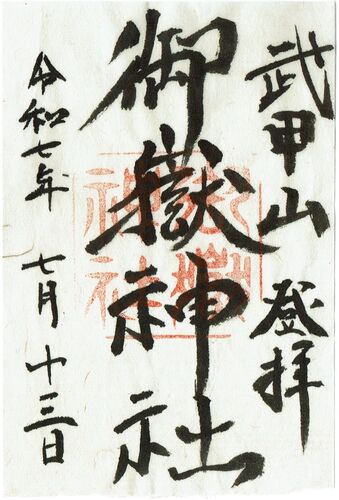 武甲山 登拝
御嶽神社
令和七年 七月十三日